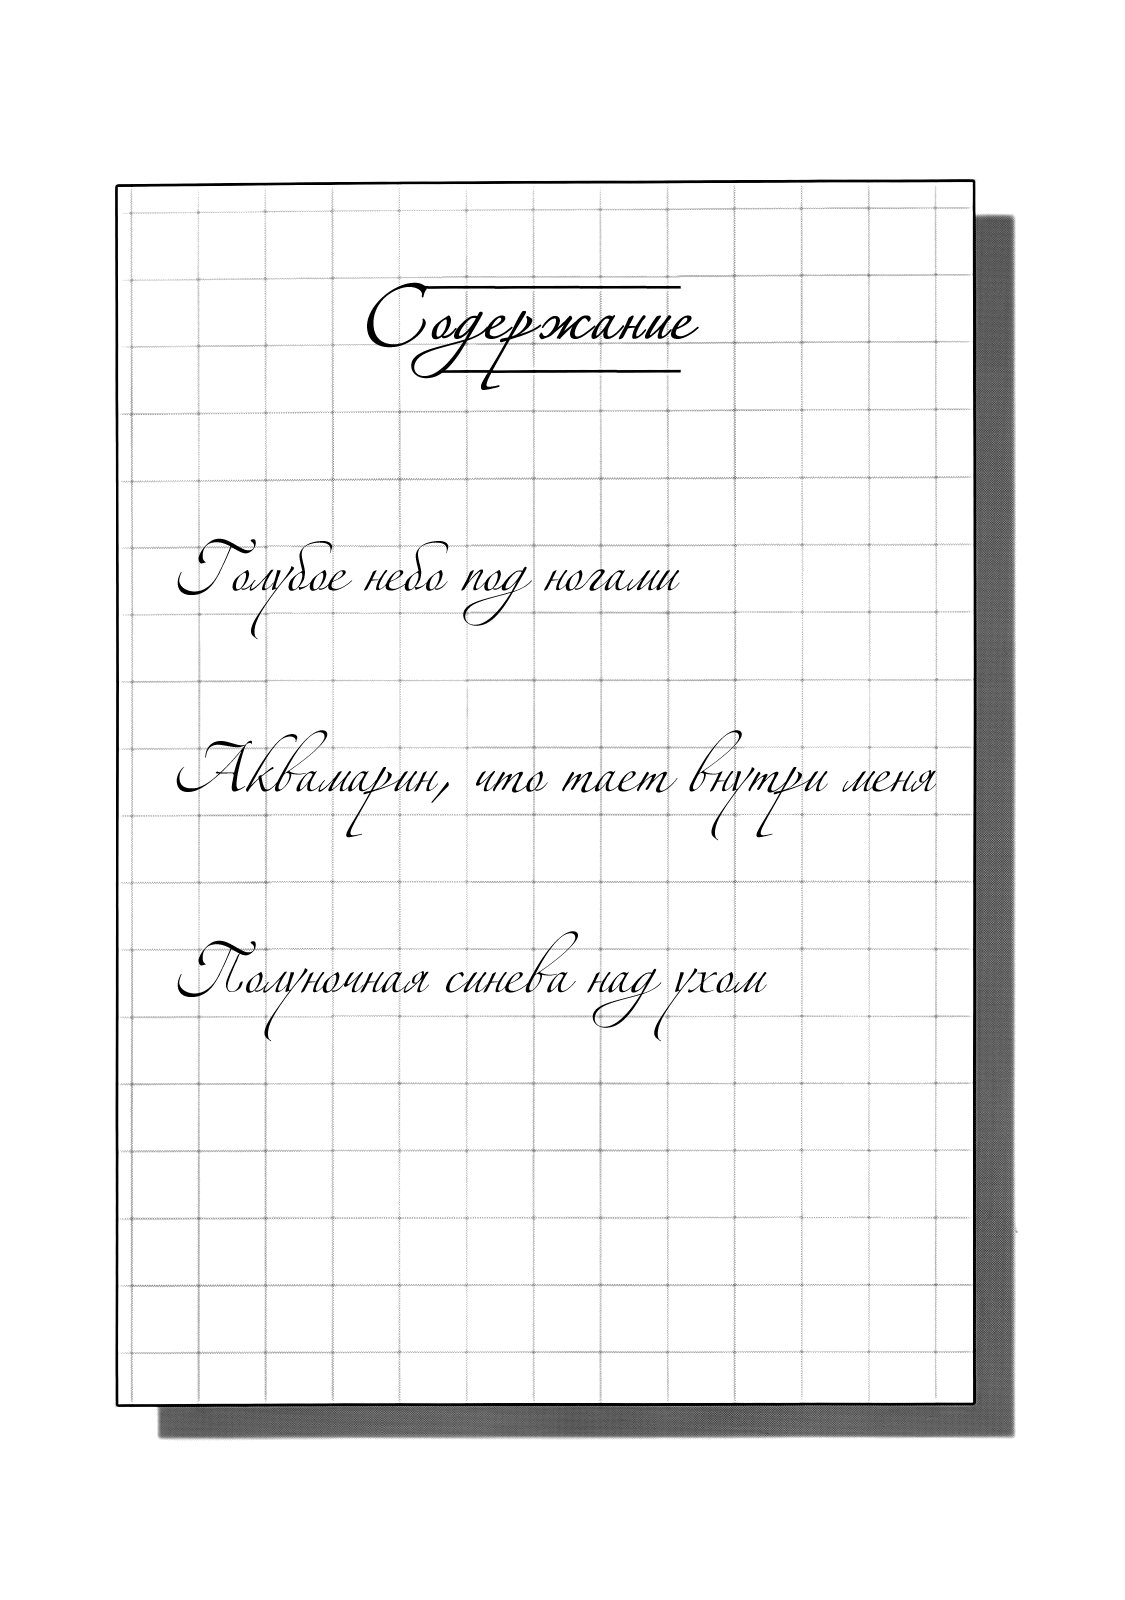 Содержание
Голубое небо под ногами
Аквамарин, что тает внутри меня
Полуночная синева над ухом